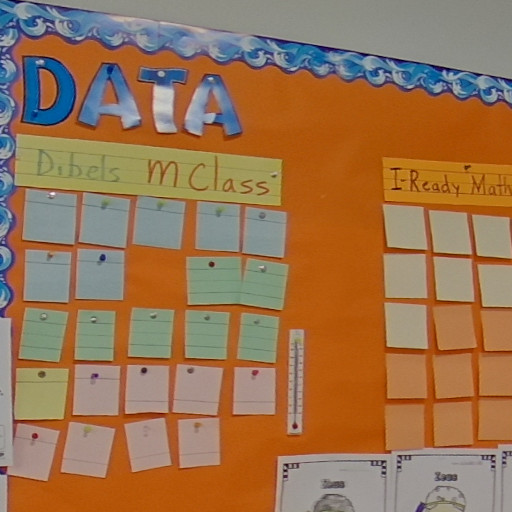 DATA
Dibels M Class
I-Ready Math
Zeus